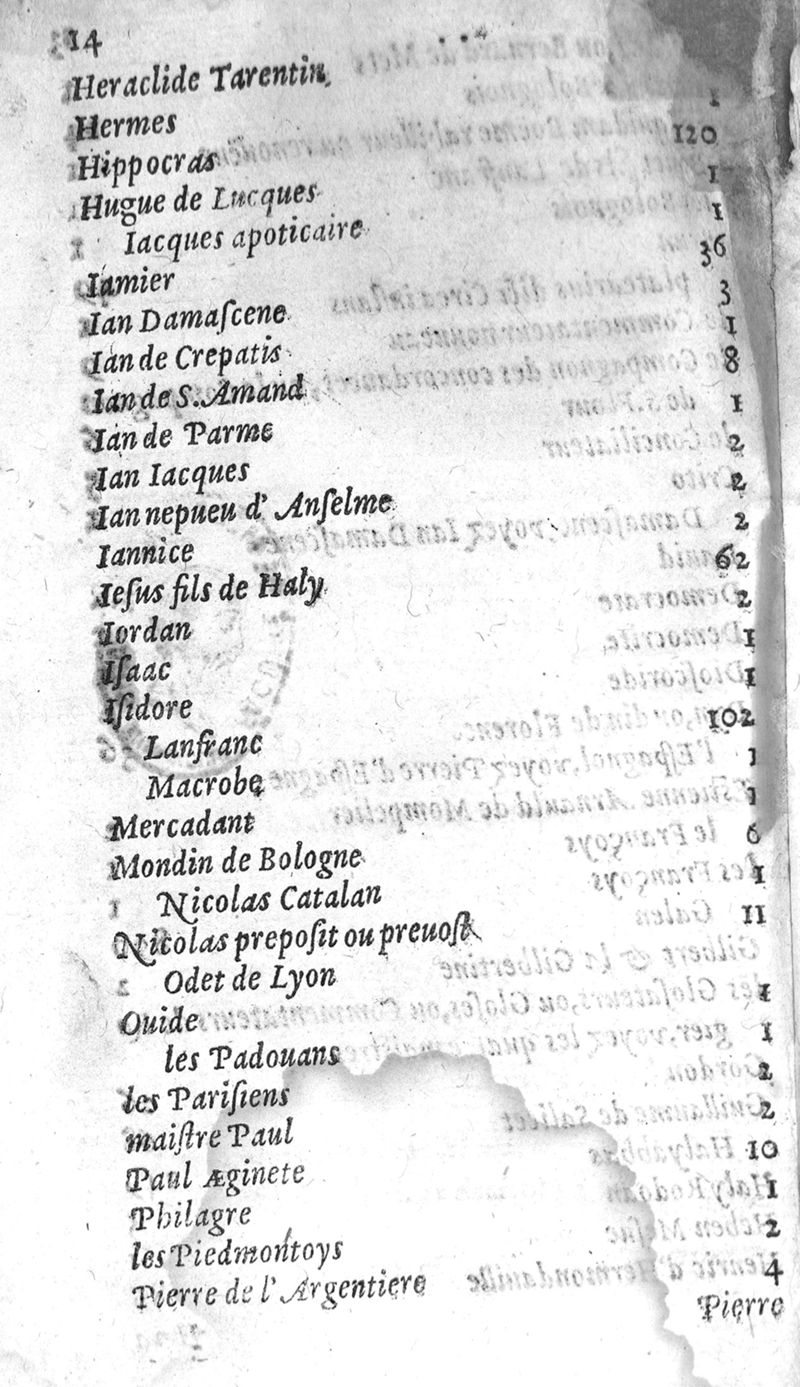 14
Heraclide Tarentin
Hermes 1
Hippocras 120
Hugue de Lucques 1
Iacques apoticaire 1
Iamier 36
Ian Damaſcene 3
Ian de Crepatis 1
Ian de S. Amand 8
Ian de Parme 1
Ian Iacques 2
Ian nepueu d' Anſelme 2
Iannice 2
Ieſus fils de Haly 62
Iordan 2
Iſaac 1
Iſidore 1
Lanfranc 102
Macrobe 1
Mercadant 1
Mondin de Bologne 6
Nicolas Catalan 1
Nicolas prepoſit ou preuoſt 11
Odet de Lyon
Ouide 1
les Padouans 1
les Pariſiens 2
maiſtre Paul 2
Paul Æginete 10
Philagre 1
les Piedmontoys 2
Pierre de l' Argentiere 4
Pierre